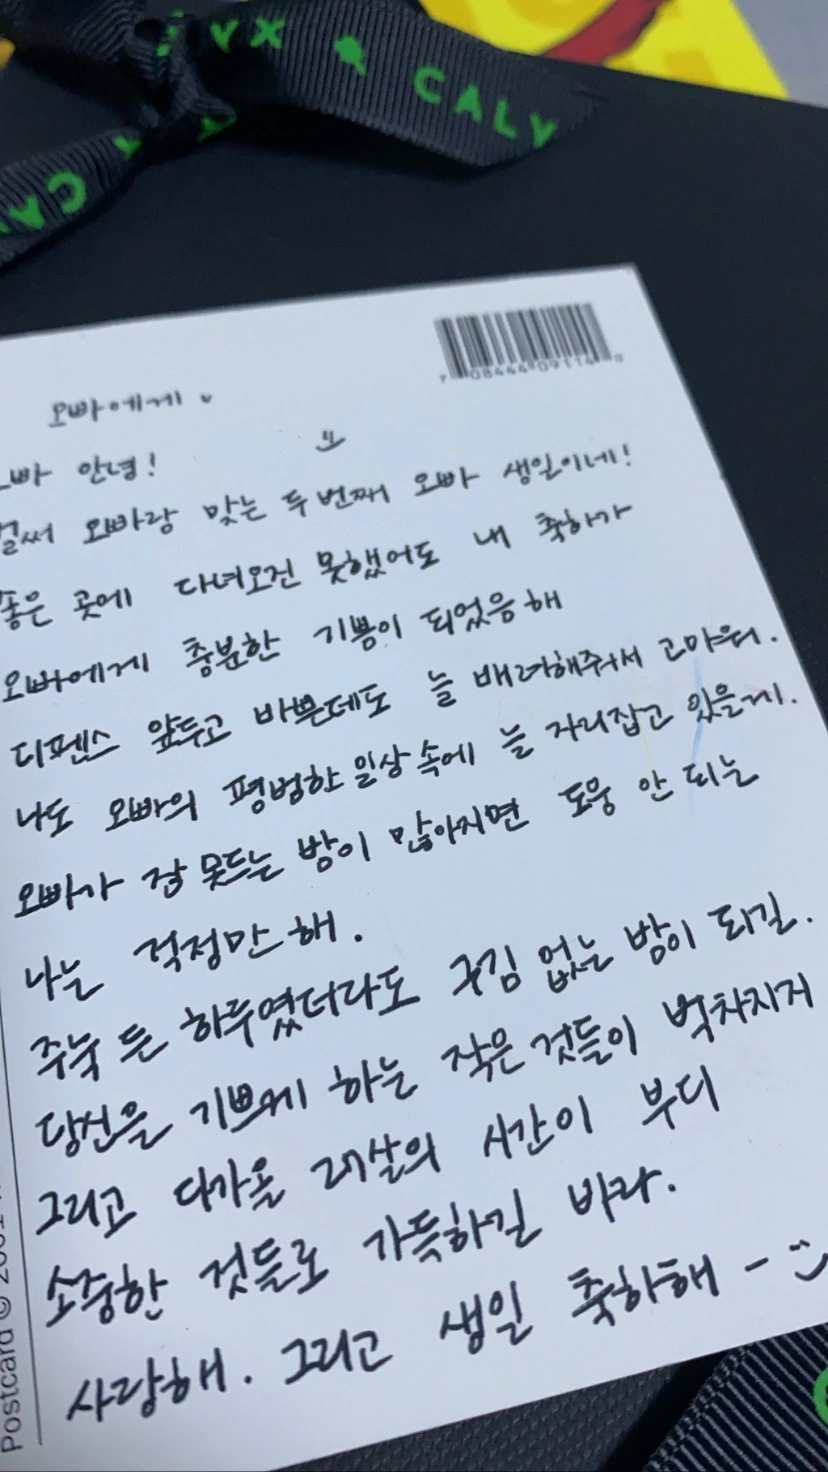 YX & CALY
CA
7 08444 09114 0
오빠에게
오빠 안녕!
벌써 오빠랑 맞는 두번째 오빠 생일이네!
좋은 곳에 다녀오진 못했어도 내 축하가
오빠에게 충분한 기쁨이 되었음해
디펜스 앞두고 바쁜데도 늘 배려해주서 고마워.
나도 오빠의 평범한 일상 속에 늘 자리잡고 있을게.
오빠가 잠 못드는 밤이 많아지면 도움 안 되는
나는 걱정만 해.
주눅 든 하루였더라도 구김 없는 밤이 되길.
당신을 기쁘게 하는 작은 것들이 벅차지기
그리고 다가올 27살의 시간이 부디
소중한 것들로 가득하길 바라.
사랑해. 그리고 생일 축하해 -
Postcard © 2001